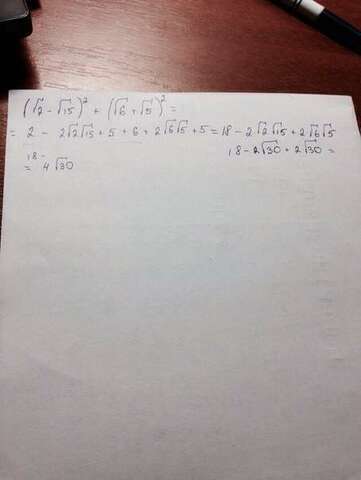 (√2 - √15)² + (√6 + √5)² =
= 2 - 2√2√15 + 5 + 6 + 2√6√5 + 5 = 18 - 2√2√15 + 2√6√5
18 - 2√30 + 2√30 =
18 -
= 4√30